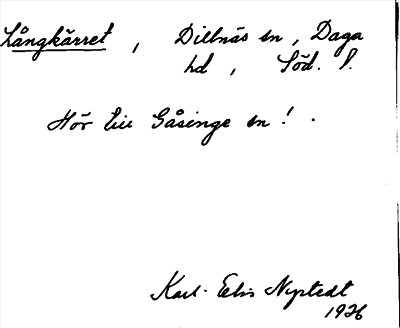 Långkärret, Dillnäs sn, Daga
hd, Söd. l.
Hör till Gåsinge sn!.
Karl-Elis Nystedt
1926